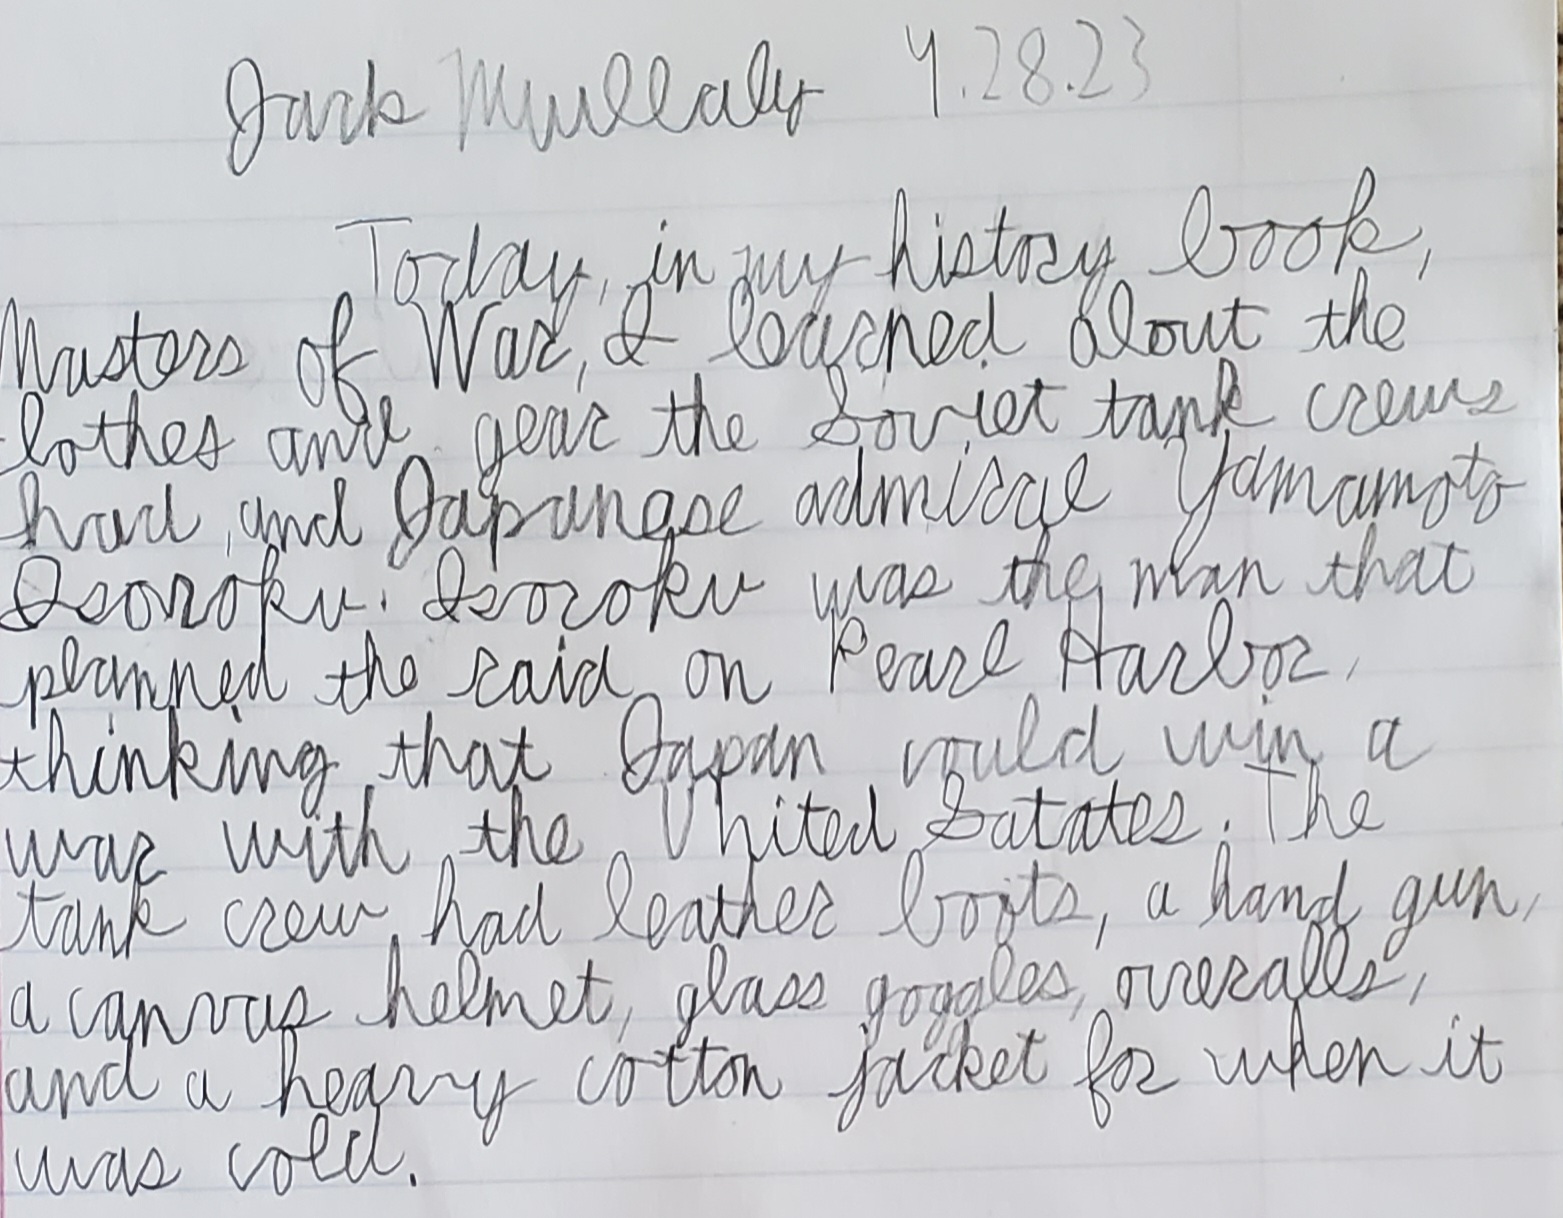 Jack Mullaly 4.28.23
Today, in my history book,
Masters of War, I learned about the
clothes and gear the Soviet tank crews
had, and Japanese admiral Yamamoto
Isoroku. Isoroku was the man that
planned the raid on Pearl Harbor,
thinking that Japan could win a
war with the United Satates. The
tank crew had leather boots, a hand gun,
a canvas helmet, glass goggles, overalls,
and a heavy cotton jacket for when it
was cold.